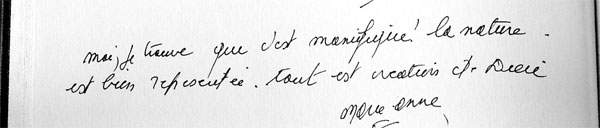 moi, je trouve que c'est manifique! la nature.
est bien représentée. tout est creations de Dieu
marie anne